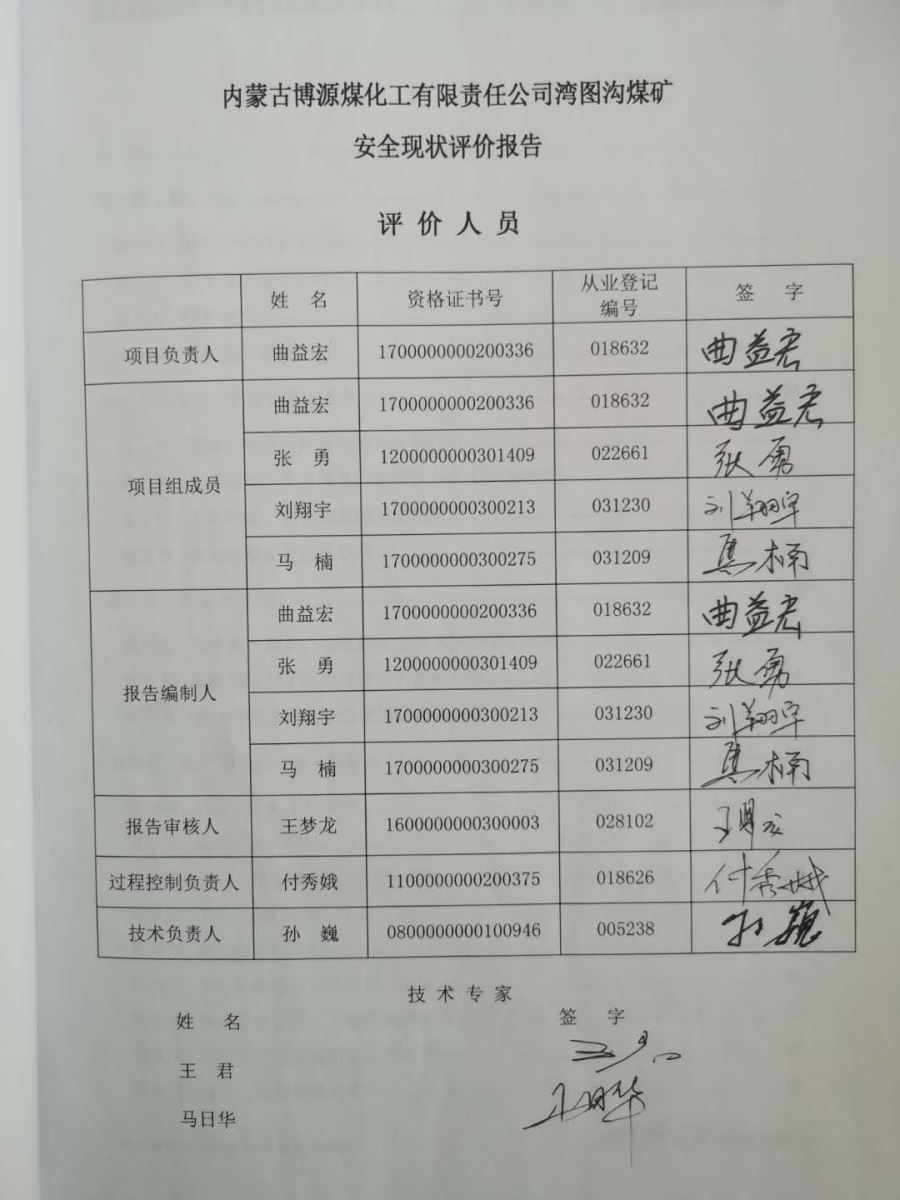 内蒙古博源煤化工有限责任公司湾图沟煤矿
安全现状评价报告
评价人员
姓 名 资格证书号 从业登记编号 签 字
项目负责人 曲益宏 1700000000200336 018632 曲益宏
项目组成员 曲益宏 1700000000200336 018632 曲益宏
张 勇 1200000000301409 022661 张勇
刘翔宇 1700000000300213 031230 刘翔宇
马 楠 1700000000300275 031209 马楠
报告编制人 曲益宏 1700000000200336 018632 曲益宏
张 勇 1200000000301409 022661 张勇
刘翔宇 1700000000300213 031230 刘翔宇
马 楠 1700000000300275 031209 马楠
报告审核人 王梦龙 1600000000300003 028102
过程控制负责人 付秀娥 1100000000200375 018626 付秀娥
技术负责人 孙 巍 0800000000100946 005238 孙巍
技术专家
姓 名 签 字
王 君
马日华 马日华